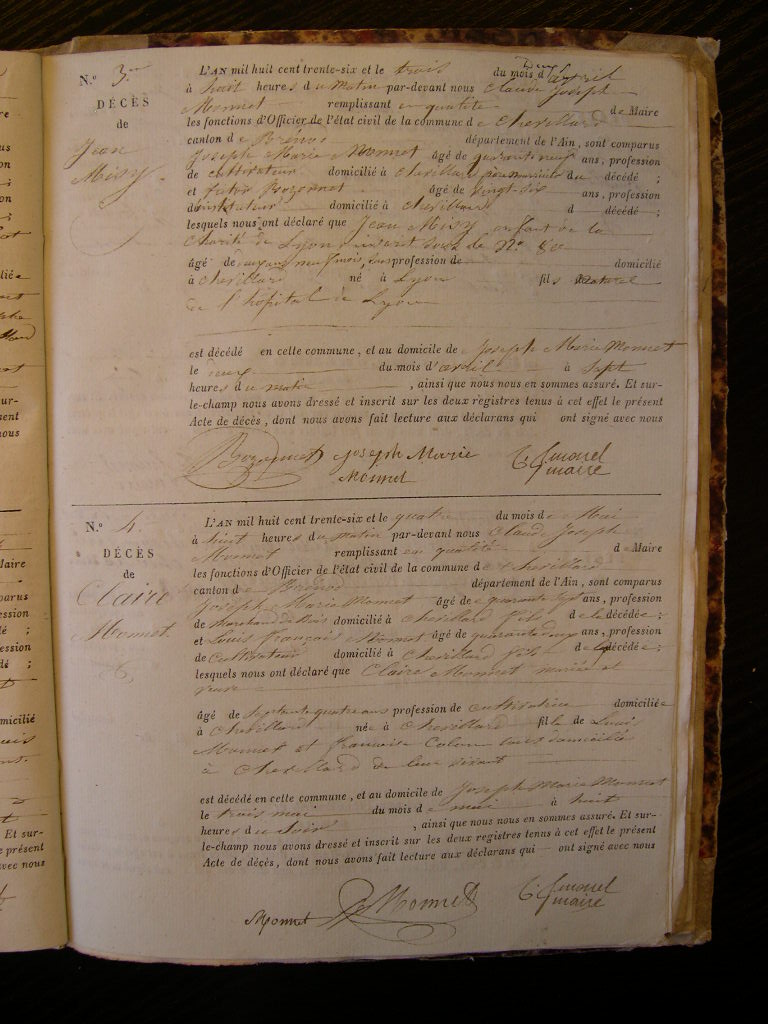 N.o 3.
DÉCÈS
de
Jean
Misy
L'AN mil huit cent trente-six et le trois du mois d'avril
à huit heures du matin par-devant nous Claude Joseph
Monnet remplissant en qualité de Maire
les fonctions d'Officier de l'état civil de la commune de Chevillard
canton de Brénod département de l'Ain, sont comparus
Joseph Marie Monnet âgé de quarante neuf ans, profession
de cultivateur domicilié à Chevillard du décédé ;
et Bozonnet âgé de vingt-six ans, profession
d'instituteur domicilié à Chevillard d décédé ;
lesquels nous ont déclaré que Jean Misy enfant de la
Charité de Lyon inscrit sous le N.o 80
âgé de deux ans neuf mois, sans profession de domicilié
à Chevillard né à Lyon fils naturel
de l'hopital de Lyon
est décédé en cette commune, et au domicile de Joseph Marie Monnet
le deux du mois d'avril à sept
heures du matin, ainsi que nous nous en sommes assuré. Et sur-
le-champ nous avons dressé et inscrit sur les deux registres tenus à cet effet le présent
Acte de décès, dont nous avons fait lecture aux déclarans qui ont signé avec nous
Bozonnet Joseph Marie
Monnet maire
N.o 4.
DÉCÈS
de
Claire
Monnet
L'AN mil huit cent trente-six et le quatre du mois de Mai
à huit heures du matin par-devant nous Claude Joseph
Monnet remplissant en qualité de Maire
les fonctions d'Officier de l'état civil de la commune de Chevillard
canton de Brénod département de l'Ain, sont comparus
Joseph Marie Monnet âgé de quarante sept ans, profession
de Marchand de Bois domicilié à Chevillard fils de la décédée ;
et Louis françois Monnet âgé de quarante deux ans, profession
de Cultivateur domicilié à Chevillard fils de la décédée ;
lesquels nous ont déclaré que Claire Monnet mariée et
veuve
âgé de septante quatre ans profession de cultivatrice domiciliée
à Chevillard née à Chevillard fille de Louis
Monnet et francoise Colon tous domiciliés
à Chevillard de leur vivant
est décédée en cette commune, et au domicile de Joseph Marie Monnet
le trois mai du mois de mai à huit
heures du soir, ainsi que nous nous en sommes assuré. Et sur-
le-champ nous avons dressé et inscrit sur les deux registres tenus à cet effet le présent
Acte de décès, dont nous avons fait lecture aux déclarans qui ont signé avec nous
Monnet Monnet maire